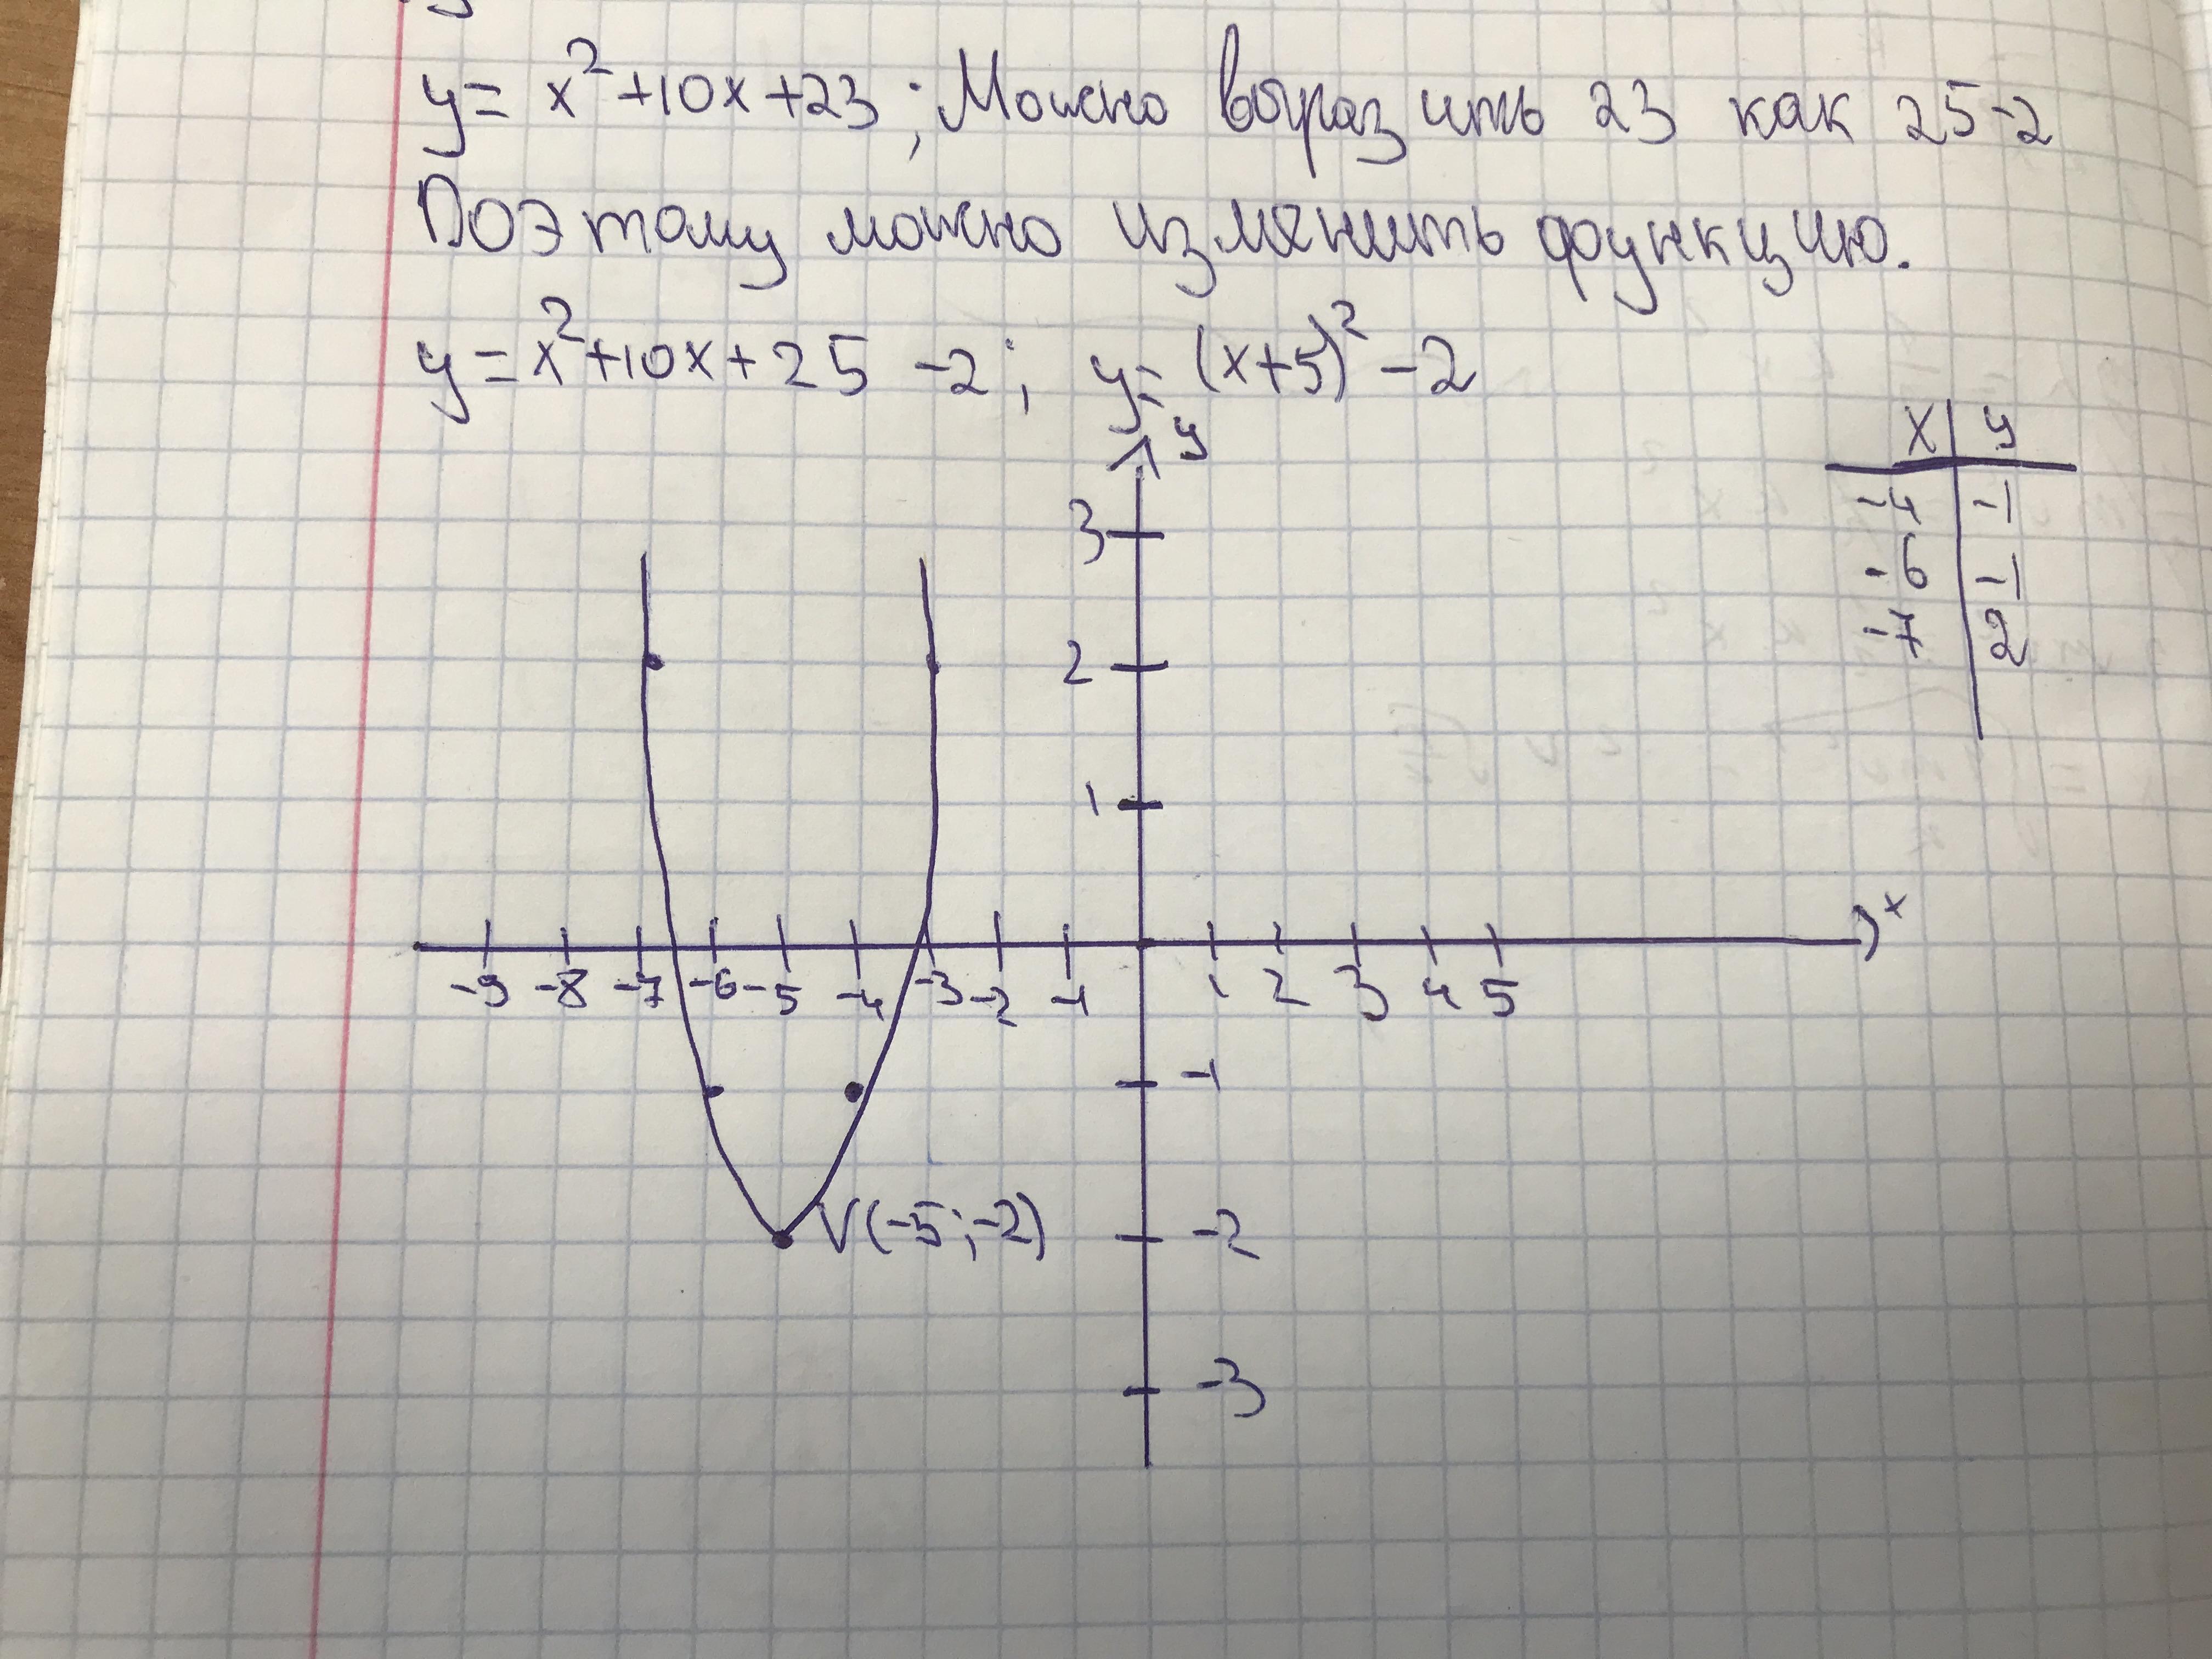 y = x² + 10x + 23 ; Можно выразить 23 как 25-2
Поэтому можно изменить функцию.
y = x² + 10x + 25 - 2 ; y = (x+5)² - 2
y
x y
-4 -1
-6 -1
-7 2
3
2
1
x
-9 -8 -7 -6 -5 -4 -3 -2 -1 1 2 3 4 5
-1
V(-5;-2)
-2
-3